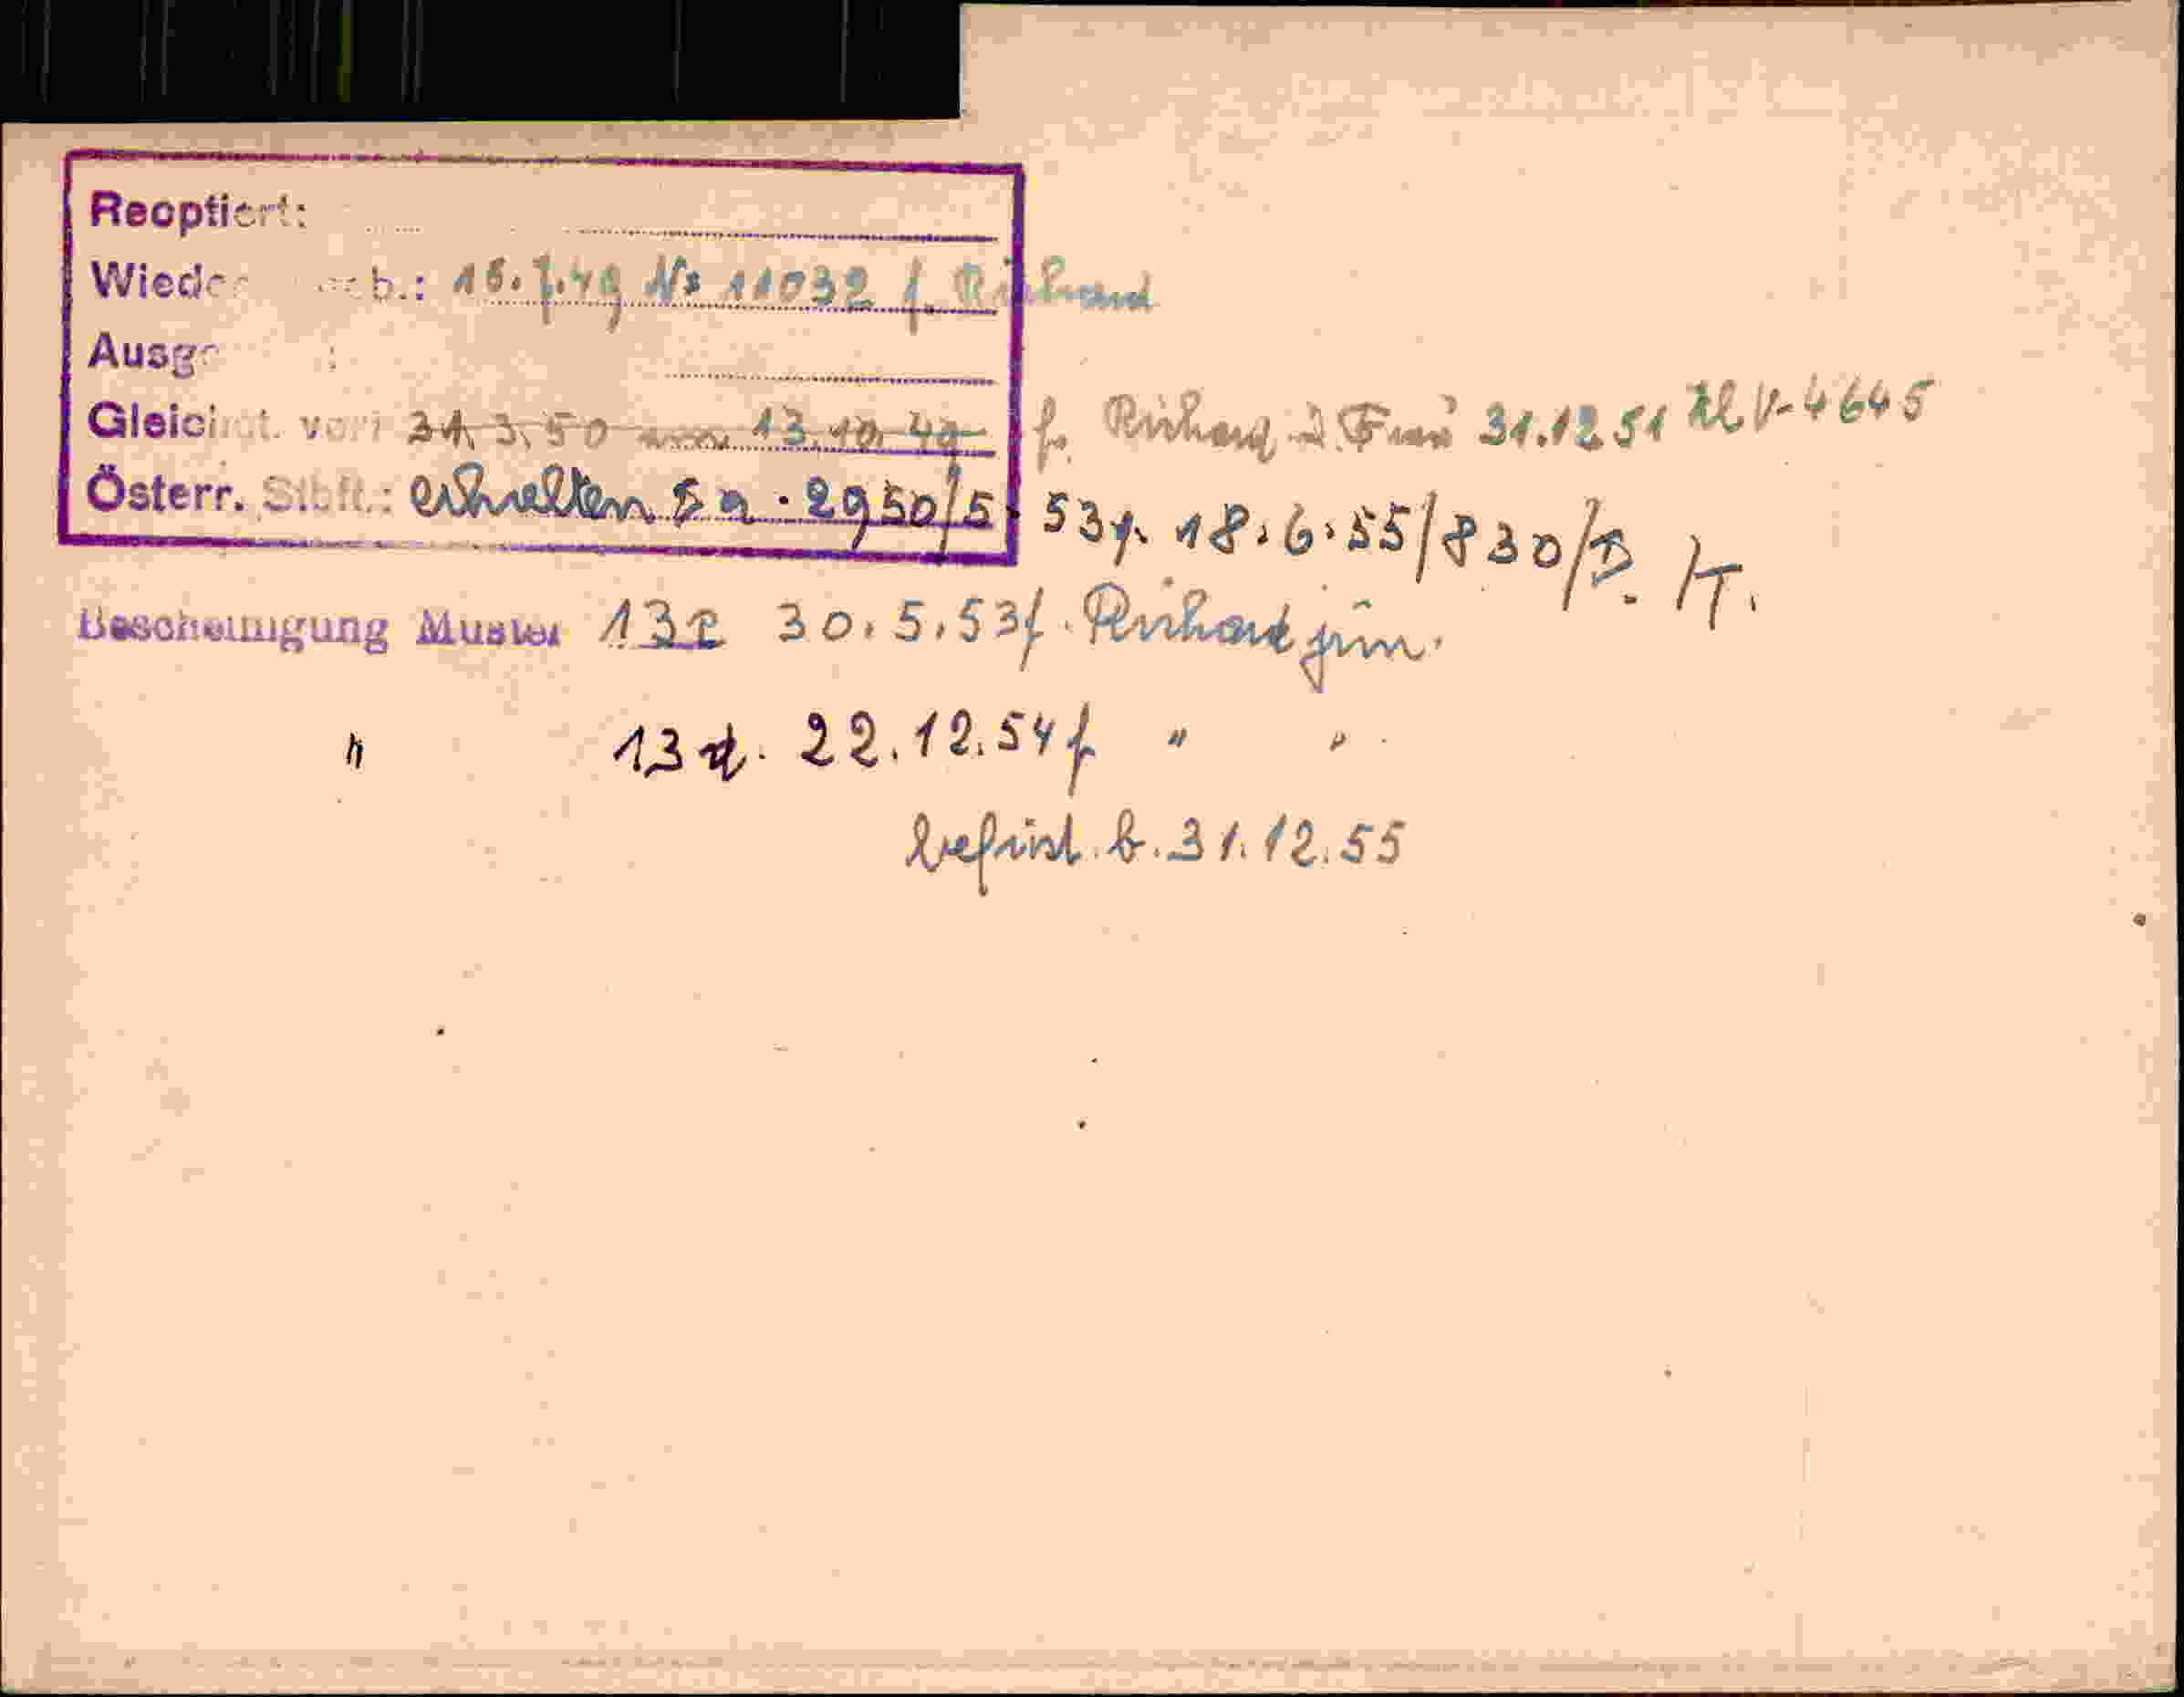 Reoptiert:
Wieder erb.: 15.7.49 Nr 11032 f. Richard
Ausge :
Gleichst. vor: 31.3.50 13.10.49 f. Richard 31.12.51 V-4645
Österr. Stbft.: erhalten 5 a. 2950/5 53 f. 18.6.55/830/D. /T.
Bescheinigung Muster 132 30.5.53 f. Richard jun.
" 13 d. 22.12.54 f " "
befrist. b. 31.12.55